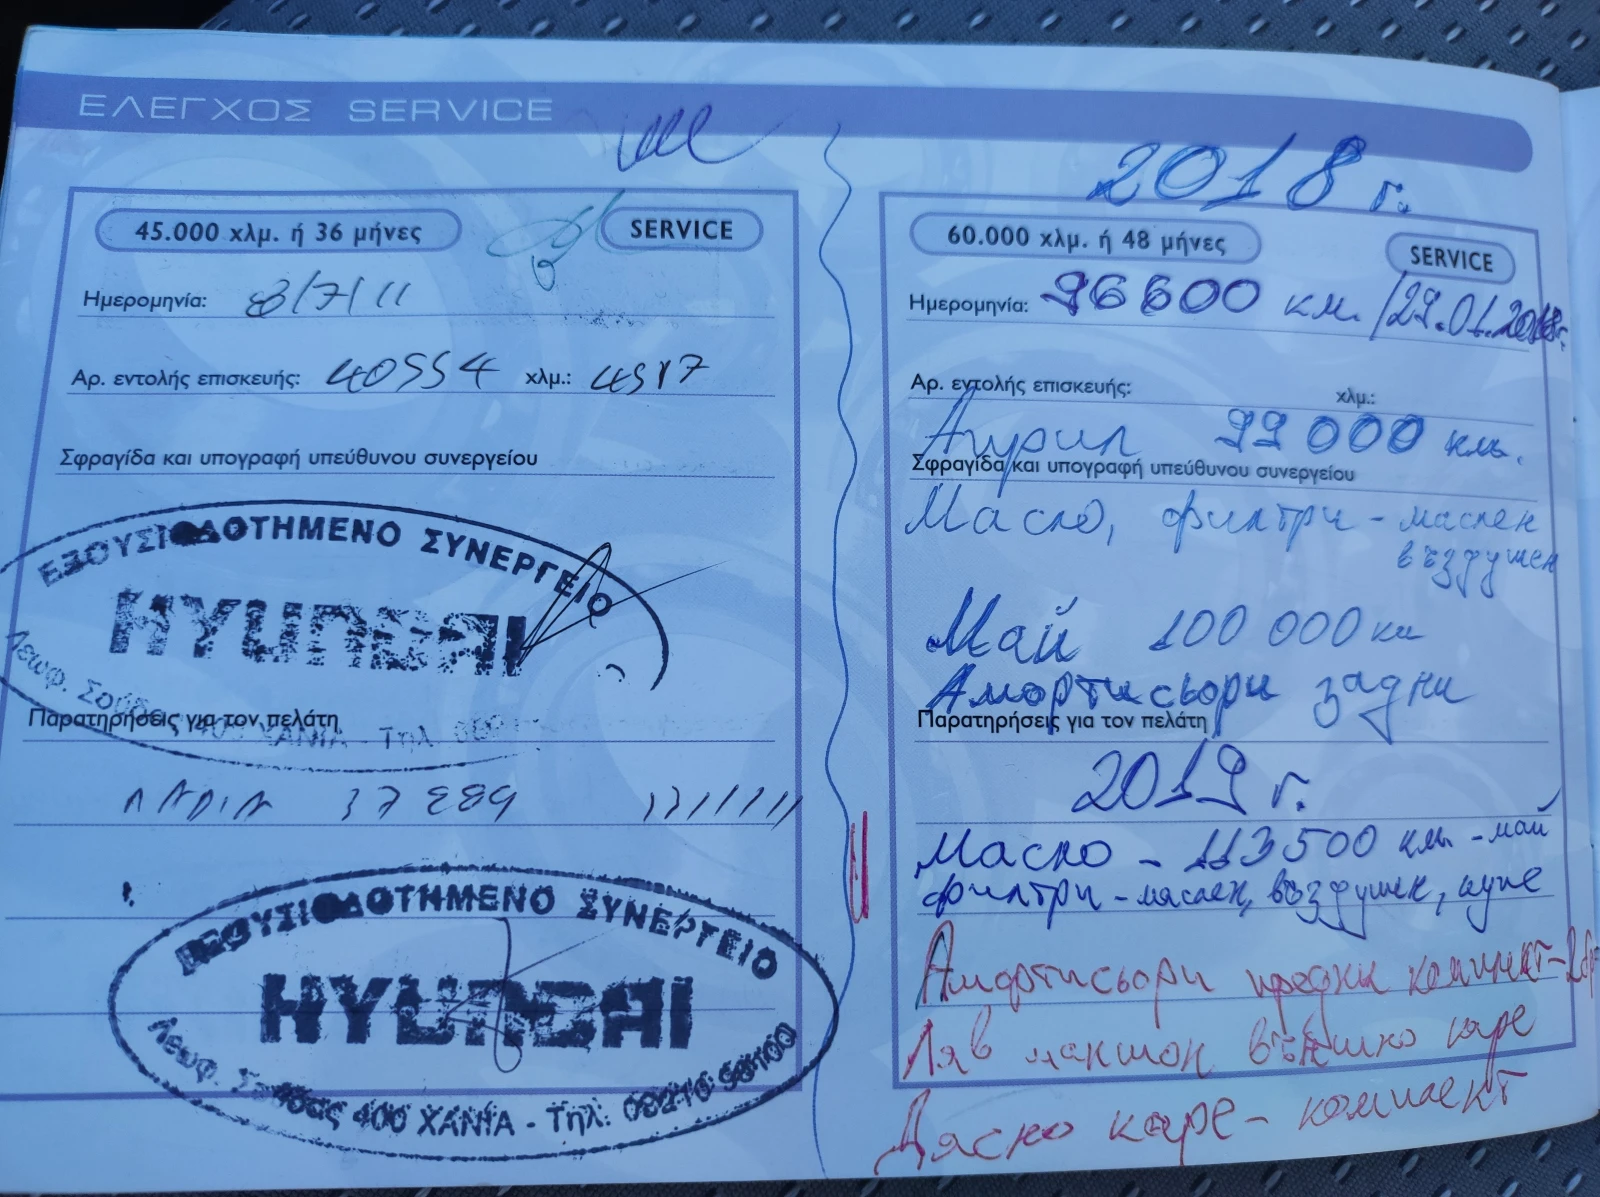 ΕΛΕΓΧΟΣ SERVICE
45.000 χλμ. ή 36 μήνες
SERVICE
Ημερομηνία: 8/7/11
Αρ. εντολής επισκευής: 40554 χλμ.:
Σφραγίδα και υπογραφή υπεύθυνου συνεργείου
ΕΞΟΥΣΙΟΔΟΤΗΜΕΝΟ ΣΥΝΕΡΓΕΙΟ
HYUNDAI
Λεωφ. Σούδας 400 ΧΑΝΙΑ - Τηλ.
Παρατηρήσεις για τον πελάτη
ΕΞΟΥΣΙΟΔΟΤΗΜΕΝΟ ΣΥΝΕΡΓΕΙΟ
HYUNDAI
Λεωφ. Σούδας 400 ΧΑΝΙΑ - Τηλ.
2018 г.
60.000 χλμ. ή 48 μήνες
SERVICE
Ημερομηνία: 96600 км. /29.01.2018г.
Αρ. εντολής επισκευής: χλμ.:
Април 99 000 км.
Σφραγίδα και υπογραφή υπεύθυνου συνεργείου
Масло, филтри - маслен
въздушен
Май 100 000 км
Амортисьори задни
Παρατηρήσεις για τον πελάτη
2019 г.
Масло - 113500 км - май
филтри - маслен, въздушен, купе
Амортисьори предни комплект - 2бр
Ляв маншон външно каре
Дясно каре - комплект